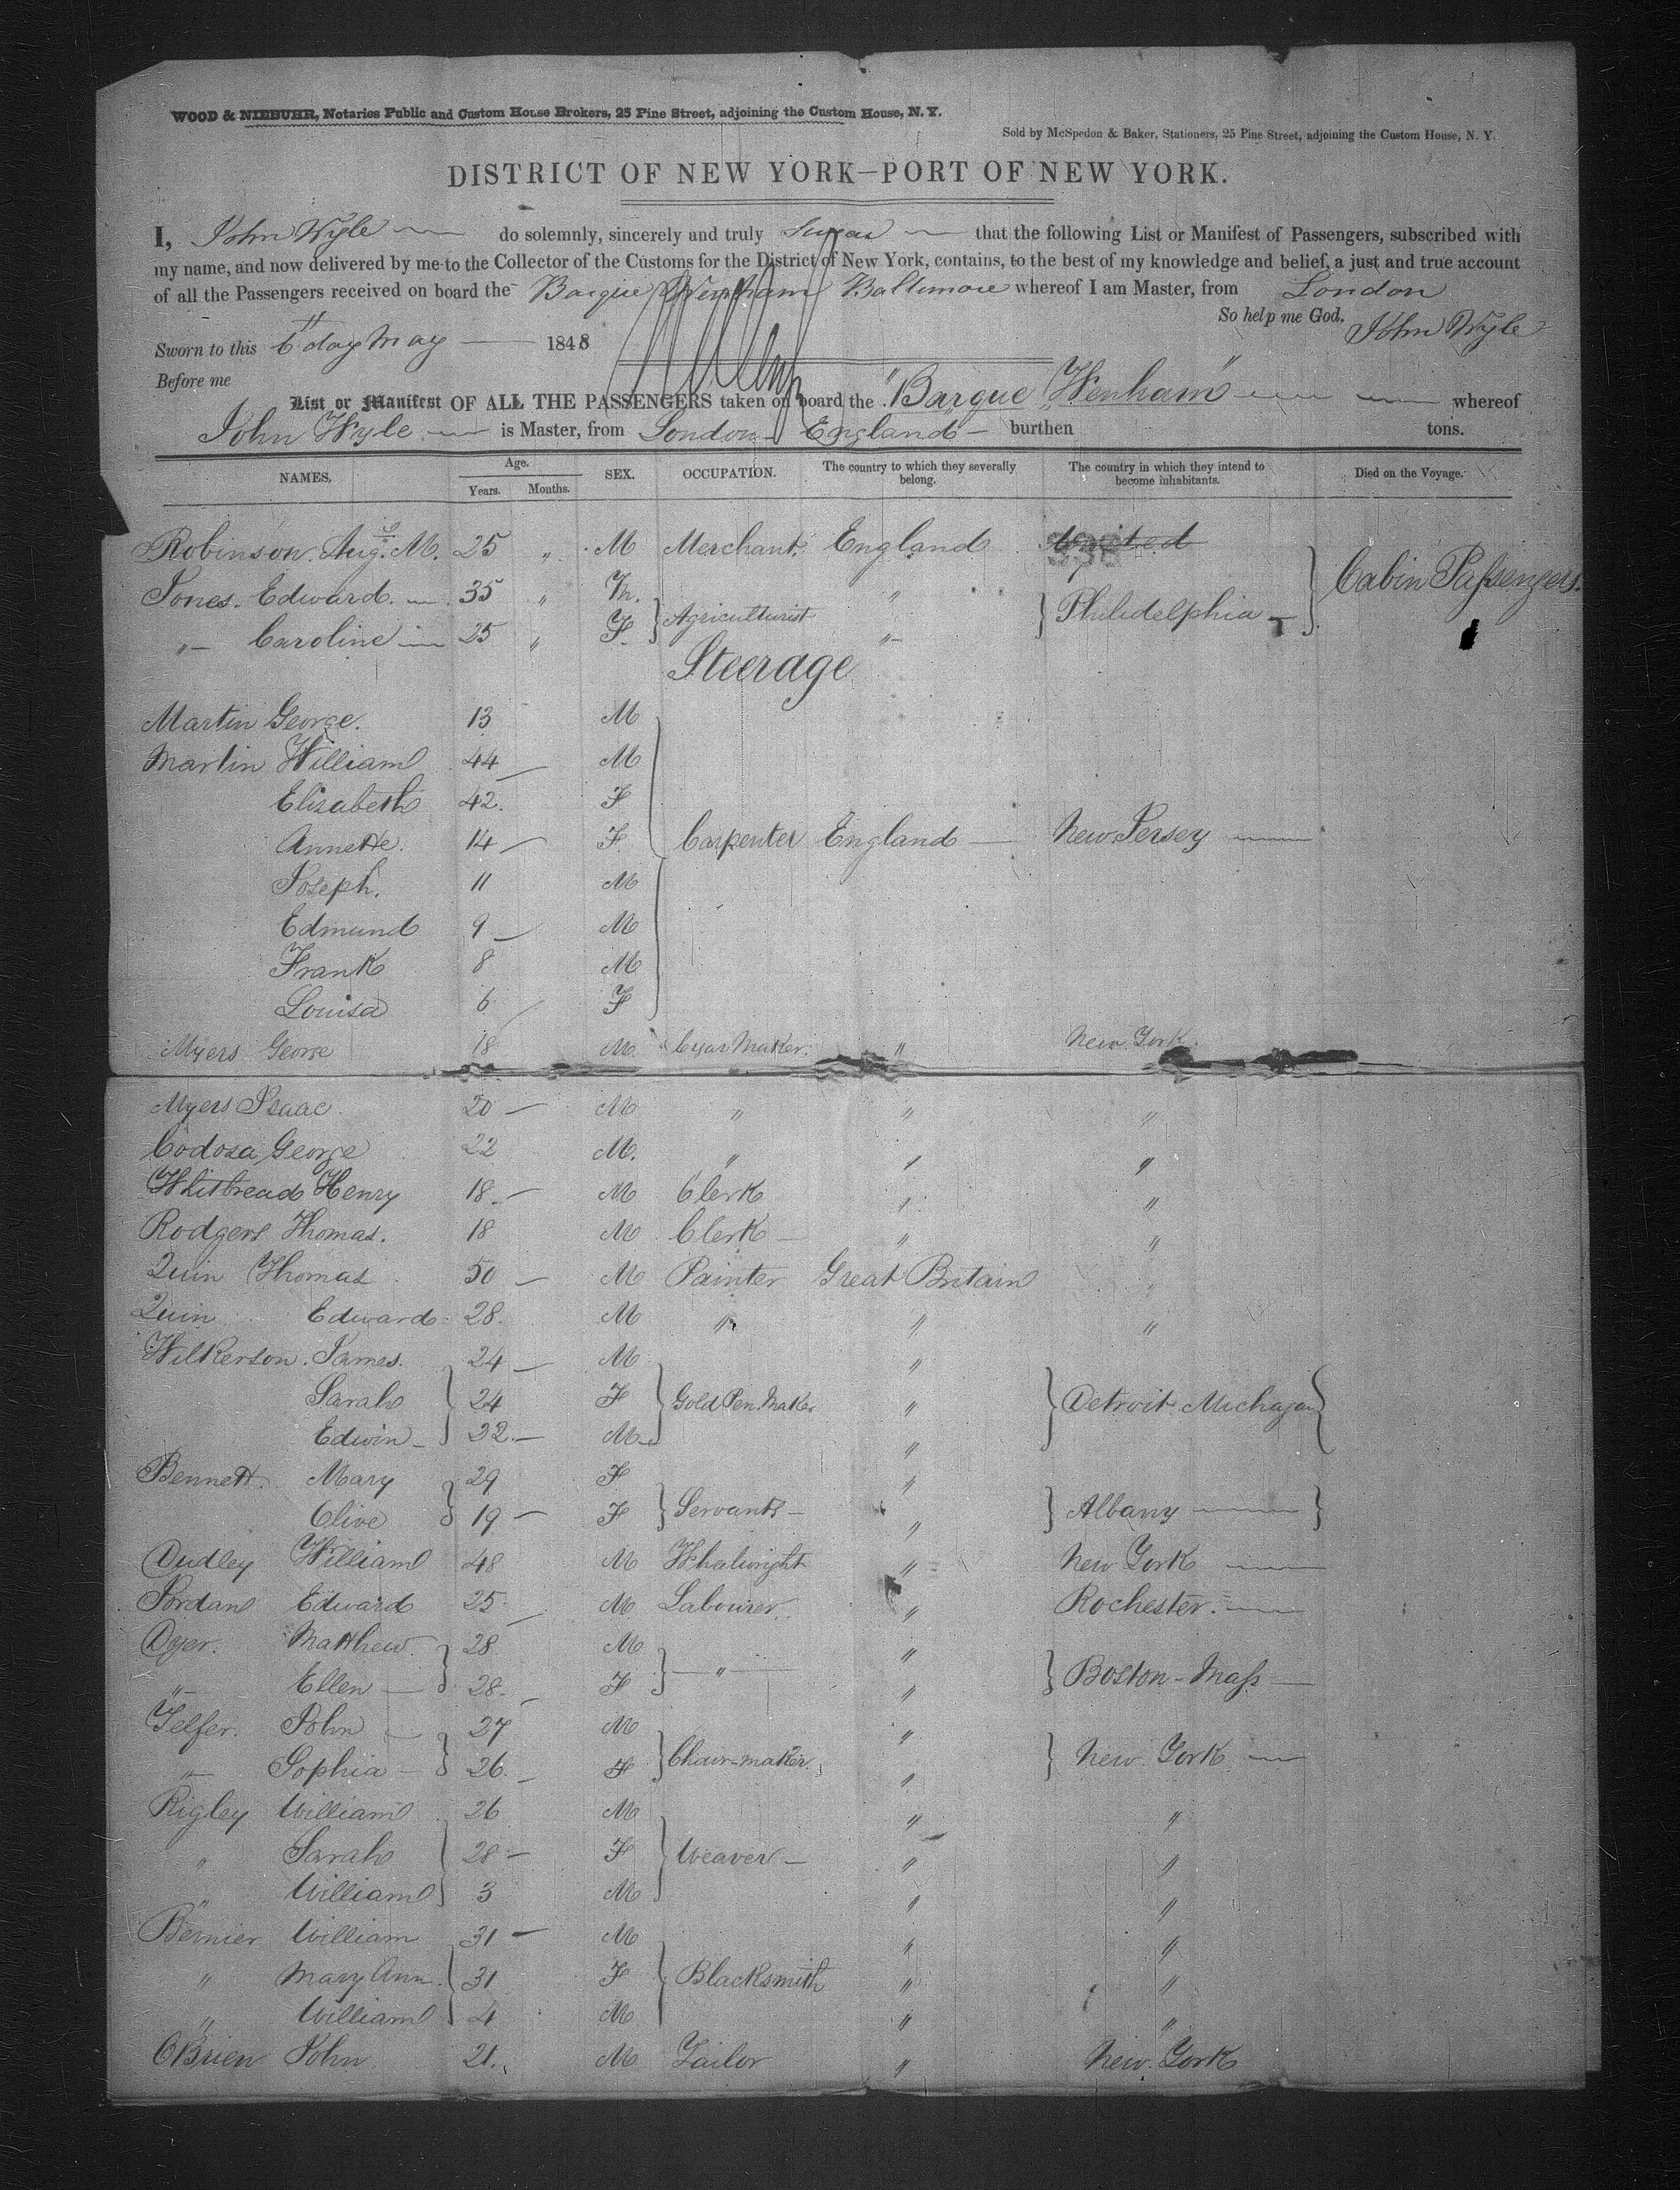 WOOD & NIEBUHR, Notaries Public and Custom House Brokers, 25 Pine Street, adjoining the Custom House, N. Y.
Sold by McSpedon & Baker, Stationers, 25 Pine Street, adjoining the Custom House, N. Y.
DISTRICT OF NEW YORK—PORT OF NEW YORK.
I, John Wyle do solemnly, sincerely and truly Swear that the following List or Manifest of Passengers, subscribed with
my name, and now delivered by me to the Collector of the Customs for the District of New York, contains, to the best of my knowledge and belief, a just and true account
of all the Passengers received on board the Barque Wenham Baltimore whereof I am Master, from London
So help me God. John Wyle
Sworn to this 6th day May 1848
Before me
List or Manifest OF ALL THE PASSENGERS taken on board the "Barque "Wenham" whereof
John Wyle is Master, from London - England - burthen tons.
NAMES. Age. Years. Months. SEX. OCCUPATION. The country to which they severally belong. The country in which they intend to become inhabitants. Died on the Voyage.
Robinson. Aug. M. 25 " M Merchant England United
Jones. Edward. 35 " M. Agriculturist " Philidelphia Cabin Passengers.
" Caroline 25 " F "
Steerage
Martin George. 13 M
Martin William 44 M
Elisabeth 42. F
Annette. 14 F Carpenter England New Jersey
Joseph. 11 M
Edmund 9 M
Frank 8 M
Louisa 6 F
Myers George 18 M Cigar Maker. " New York.
Myers Isaac 20 M " " "
Codosa George 22 M. " " "
Whitbread Henry 18 M Clerk " "
Rodgers Thomas. 18 M Clerk " "
Quin Thomas 50 M Painter Great Britain "
Quin Edward 28. M " " "
Wilkerson. James. 24 M "
Sarah 24 F Gold Pen. Maker " Detroit Michagan
Edwin 22. M "
Bennett. Mary 29 F "
Olive 19 F Servants " Albany
Dudley William 48 M Whelwright " New York
Jordan Edward 25 M Labourer. " Rochester.
Dyer. Matthew 28 M "
" Ellen 28. F " " Boston - Mass
Telfer. John 27 M "
" Sophia 26. F Chair-maker. " New York
Rigley William 26 M " "
" Sarah 28 F Weaver " "
" William 3 M " "
Bernier William 31 M " "
" Mary Ann 31 F Blacksmith " "
" William 4 M " "
OBrien John 21. M Tailor " New York